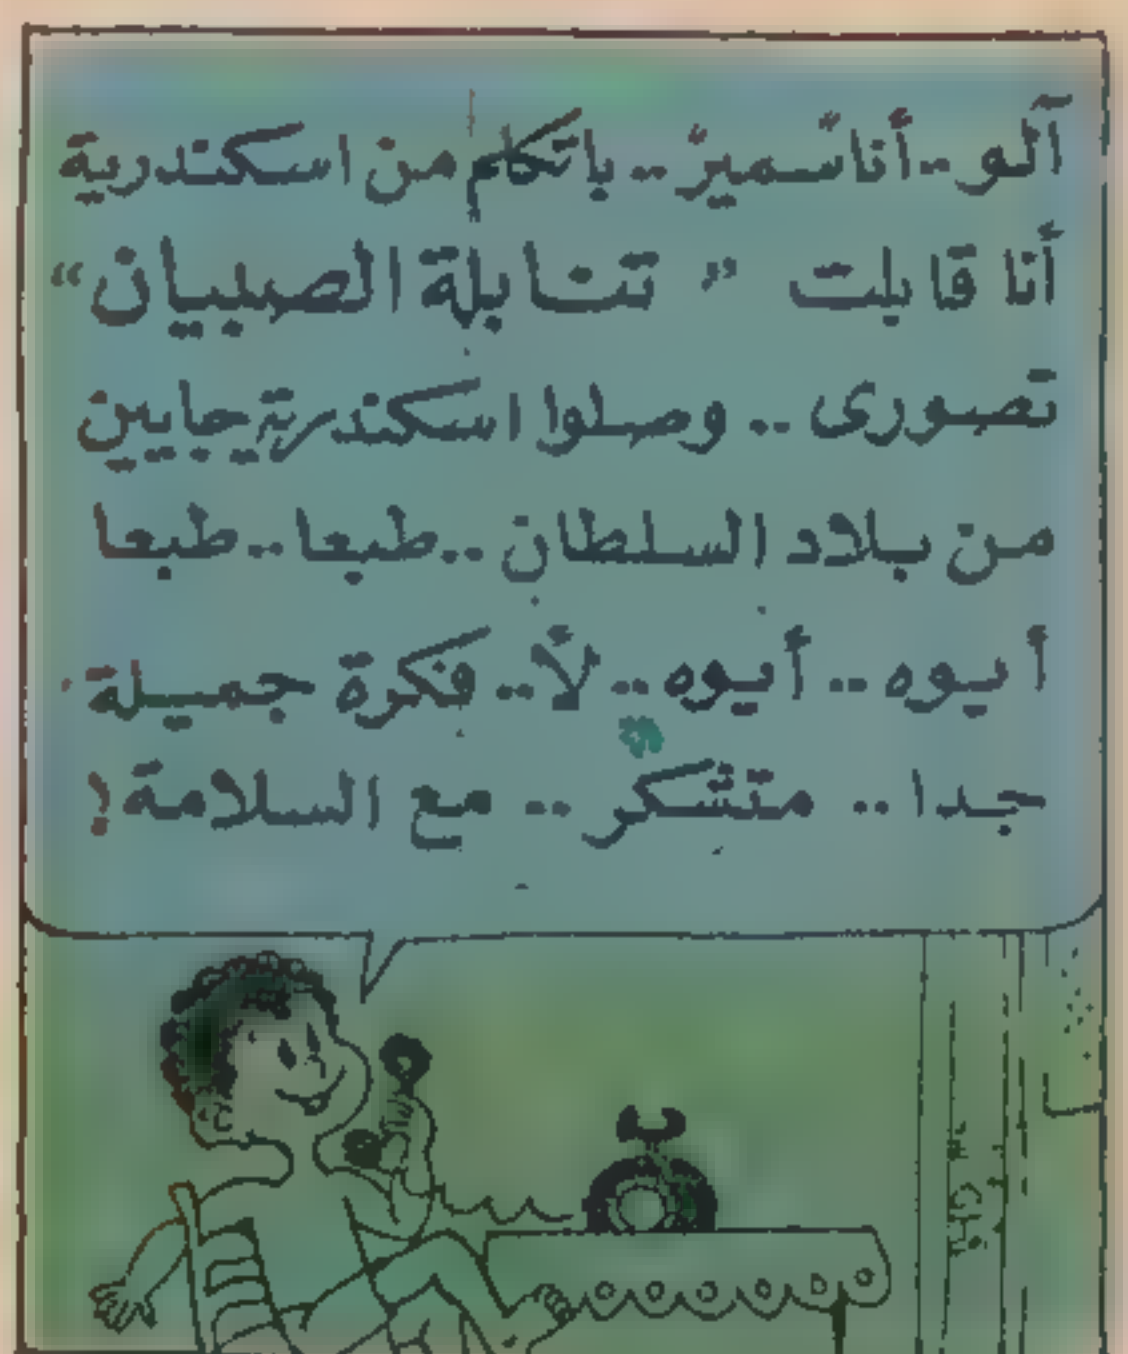 آلو .. أنا سمير .. باتكلم من اسكندرية
أنا قابلت " تنابلة الصبيان "
تصورى .. وصلوا اسكندرية جايين
من بلاد السلطان .. طبعا .. طبعا
أيوه .. أيوه .. لأ .. فكرة جميلة
جدا .. متشكر .. مع السلامة !